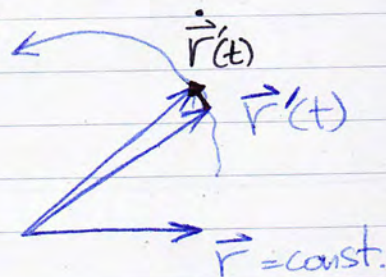 $\dot{\vec{r}}'(t)$
$\vec{r}'(t)$
$\vec{r}$ = const.